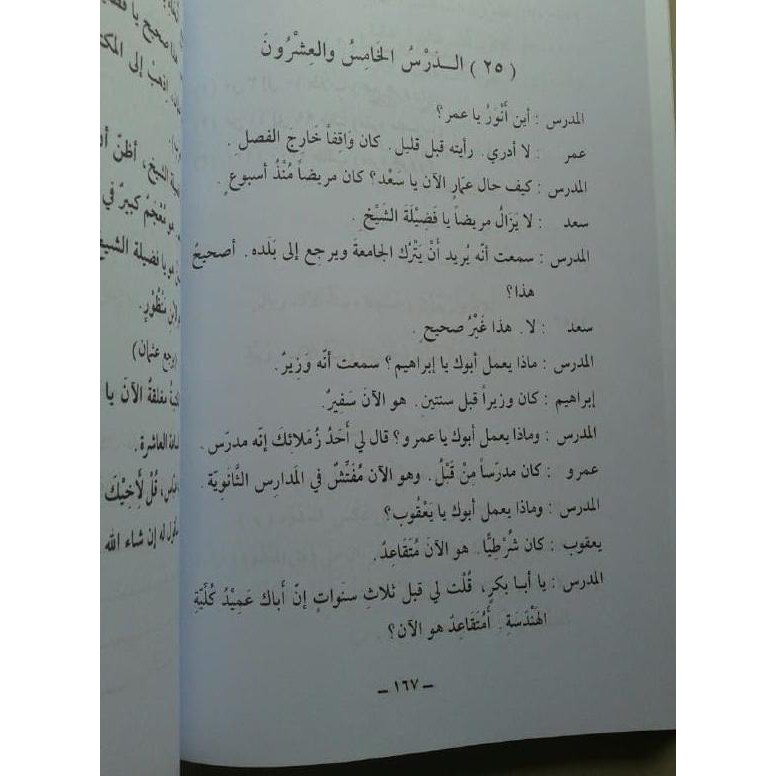 (٢٥) الــدَرْسُ الخَامِسُ والعِشْرُونَ
المدرس : أين أَنْوَرُ يا عمر؟
عمر : لا أدري. رأيته قبل قليل. كان وَاقفاً خَارِجَ الفصل .
المدرس : كيف حال عمّارٍ الآن يا سَعْد؟ كان مريضاً مُنْذُ أسبوعٍ .
سعد : لا يَزَالُ مريضاً يا فَضِيْلَةَ الشَيْخِ .
المدرس : سمعت أنّه يُريد أَنْ يَتْرُك الجامعةَ ويرجع إلى بَلَده. أصحيحٌ
هذا؟
سعد : لا. هذا غَيْرُ صحيحٍ .
المدرس : ماذا يعمل أبوك يا إبراهيم؟ سمعت أنّه وَزِيرٌ.
إبراهيم : كان وزيراً قبل سنتين. هو الآنَ سَفِيْرٌ.
المدرس : وماذا يعمل أبوك يا عمرو؟ قال لي أَحَدُ زُمَلائِكَ إنّه مدرّس.
عمرو : كان مدرّساً مِنْ قَبْلُ. وهو الآن مُفَتِّشٌ في المدارِس الثَّانَوِيّة.
المدرس : وماذا يعمل أبوك يا يَعْقُوب؟
يعقوب : كان شُرْطِيًّا. هو الآنَ مُتَقَاعِدٌ.
المدرس : يا أبـا بكرٍ، قُلْت لي قبل ثلاثِ سنَواتٍ إنّ أَباك عَمِيْدُ كُلِّيَّةِ
الهَنْدَسَةِ. أَمُتَقَاعِدٌ هو الآن؟
– ١٦٧ –
هذا صحيح يا
إِذهبْ إلى
الشيخ، أظنّ
مُعْجَمٌ كبيرٌ في
يا فضيلة الشيخ
ابن مَنْظُورٍ.
(رجع عثمان)
مغلقةٌ الآنَ يا
العاشرة.
قُلْ لأَخِيْكَ
له إن شاء الله